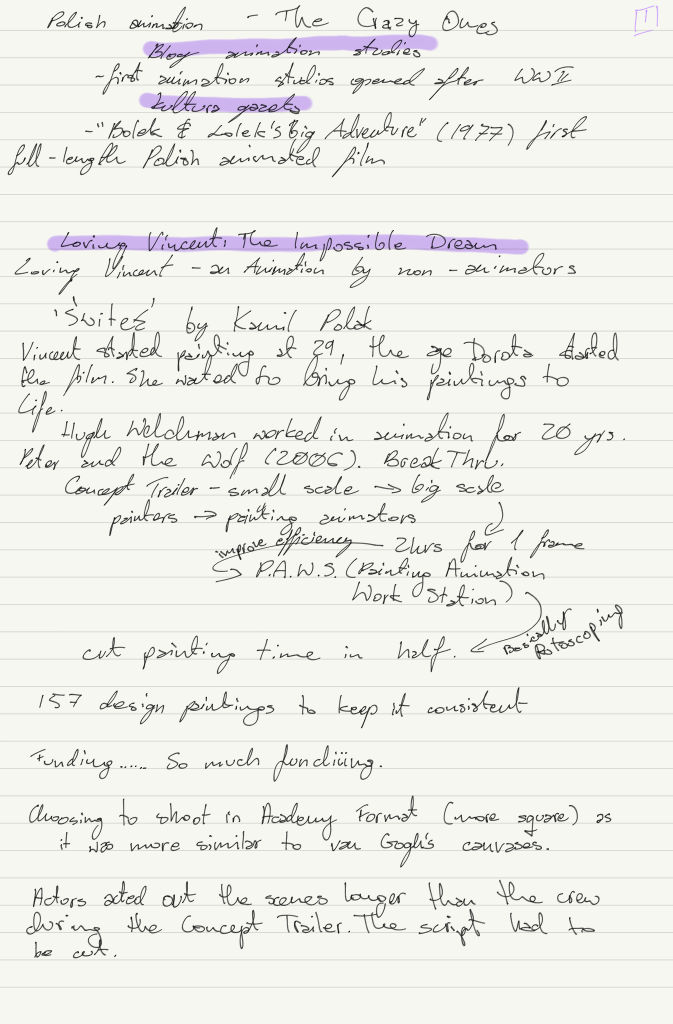 Polish animation - The Crazy Ones
1
Blog animation studies
- first animation studios opened after WWII
Kultura gazeta
- "Bolek & Lolek's big Adventure" (1977) first
full-length Polish animated film
Loving Vincent: The Impossible Dream
Loving Vincent - an Animation by non-animators
'Świteź' by Kamil Polak
Vincent started painting at 29, the age Dorota started
the film. She wanted to bring his paintings to
life.
Hugh Welchman worked in animation for 20 yrs.
Peter and the Wolf (2006). BreakThru.
Concept Trailer - small scale → big scale
painters → painting animators
improve efficiency
2hrs for 1 frame
P.A.W.S. (Painting Animation
Work Station)
Basically
Rotoscoping
cut painting time in half.
157 design paintings to keep it consistent
Funding...... So much fundiiing.
Choosing to shoot in Academy Format (more square) as
it was more similar to van Gogh's canvases.
Actors acted out the scenes longer than the crew
during the Concept Trailer. The script had to
be cut.